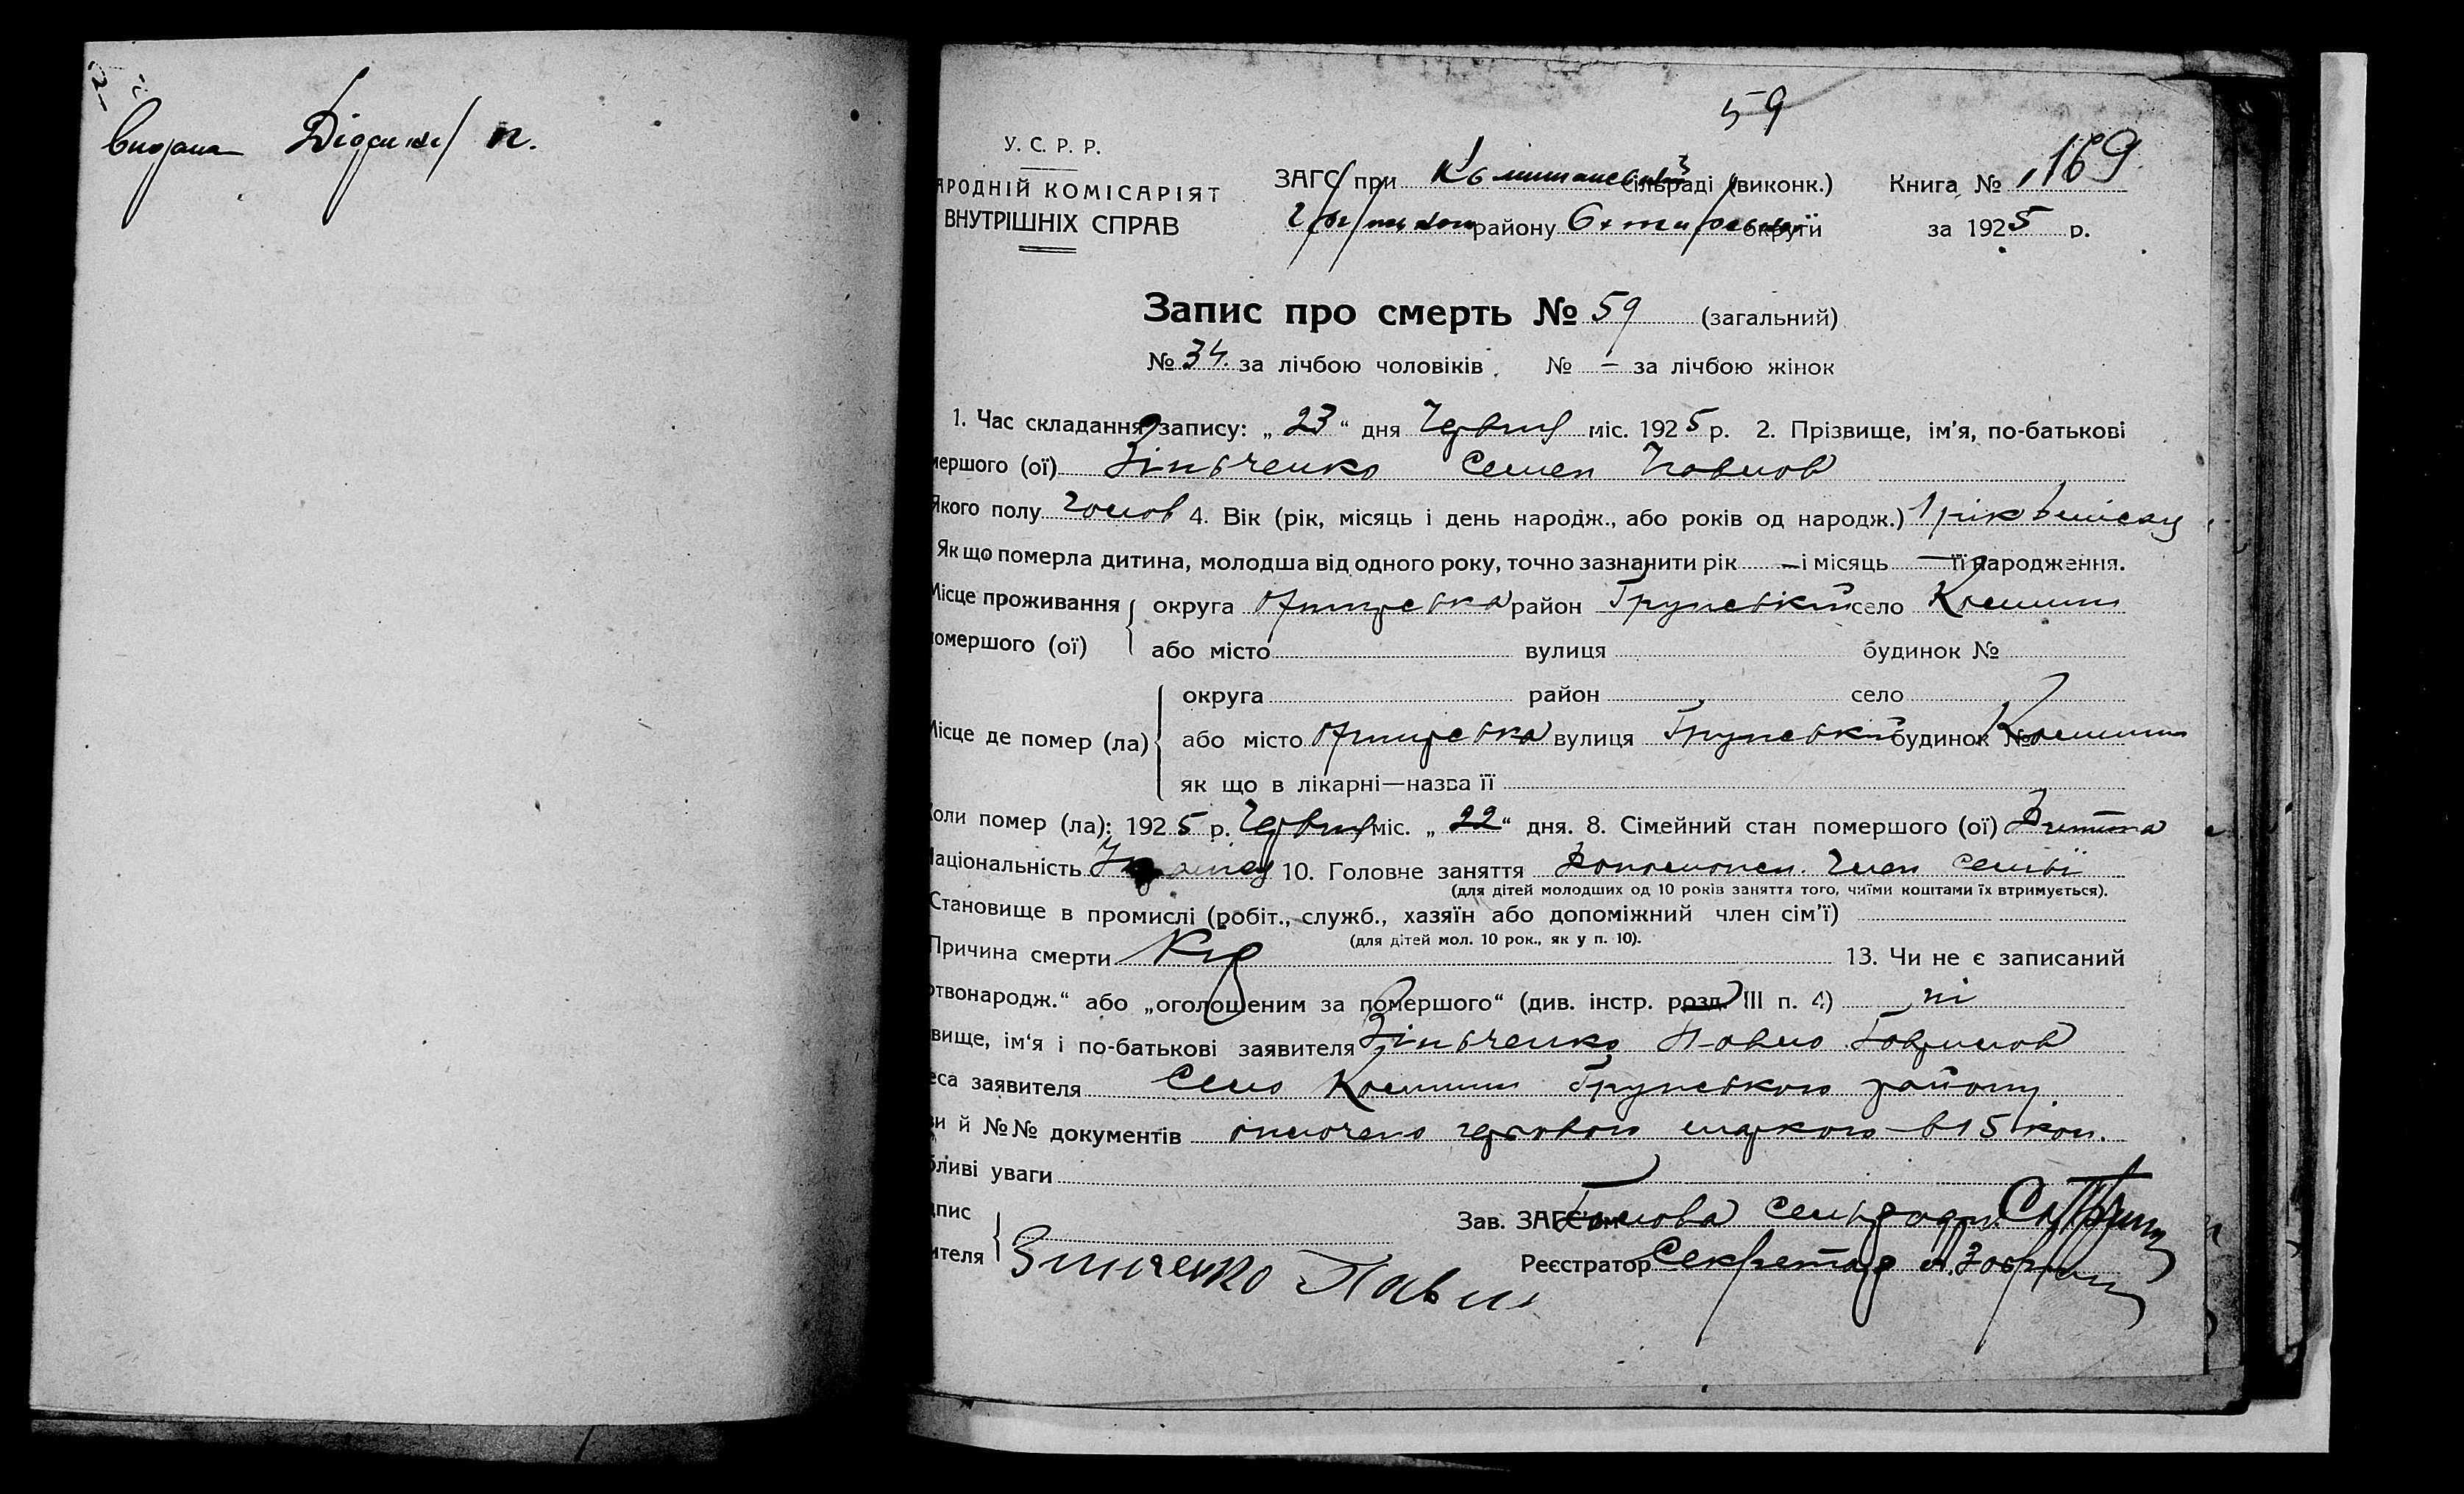 видана
59
У. С. Р. Р.
АРОДНІЙ КОМІСАРІЯТ
ВНУТРІШНІХ СПРАВ
ЗАГС при сільраді (виконк.) Книга № 169
району округи за 1925 р.
Запис про смерть № 59 (загальний)
№ 34. за лічбою чоловіків. № – за лічбою жінок
1. Час складання запису: „23“ дня Червня міс. 1925 р. 2. Прізвище, ім’я, по-батькові
мершого (ої) Зіньченко Семен Павлов
Якого полу чолов 4. Вік (рік, місяць і день народж., або років од народж.) 1 рік
Як що померла дитина, молодша від одного року, точно зазначити рік – і місяць — її народження.
Місце проживання округа Охтирська район Грунський село Комиши
омершого (ої) або місто вулиця будинок №
округа район село
Місце де помер (ла) або місто Охтирська вулиця Грунський будинок № Комиши
як що в лікарні—назва її
Коли помер (ла): 1925 р. Червня міс. „22“ дня. 8. Сімейний стан помершого (ої) Дитина
Національність Українец 10. Головне заняття Допомочен. член семьї
(для дітей молодших од 10 років заняття того, чиїми коштами їх втримується).
Становище в промислі (робіт., служб., хазяїн або допоміжний член сім’ї)
(для дітей мол. 10 рок., як у п. 10).
Причина смерти Кір 13. Чи не є записаний
ртвонародж.“ або „оголошеним за помершого“ (див. інстр. розд. III п. 4) ні
вище, ім’я і по-батькові заявителя Зіньченко Павло Гаврилов
еса заявителя Село Комиши Грунського району.
ви й №№ документів оплочено гербовою маркою в 15 коп.
бливі уваги
дпис
Зав. ЗАГС’ом Голова сельради
ителя Зинченко Павло Реєстратор Секретар